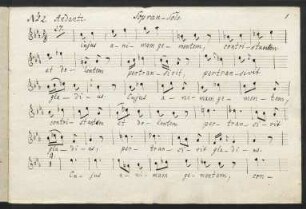 No 2. Andante Sopran-Solo. 1
27.
Cujus a-ni-mam ge-mentem, contri-stantem
et do-lentem pertran-sivit, pertran-sivit
gla-di-us Cujus a-ni-mam ge-men-tem,
contri-stantem et do-lentem pertran-si-vit
gla-di-us; per-tran-si-vit gla-di-us.
Cu-jus a-ni-mam gementem, con-